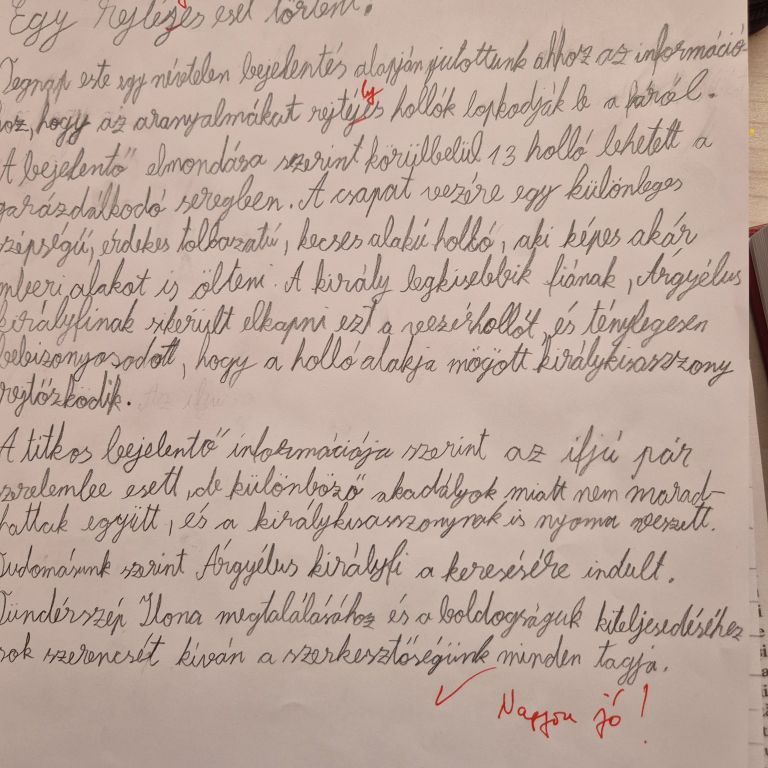 Egy rejtéjes eset történt.
Tegnap este egy névtelen bejelentés alapján jutottunk ahhoz az információ
hoz, hogy az aranyalmákat rejtéjes hollók lopkodják le a fáról.
ly
A bejelentő elmondása szerint körülbelül 13 holló lehetett a
garázdálkodó seregben. A csapat vezére egy különleges
szépségű, érdekes tollazatú, kecses alakú holló, aki képes akár
mberi alakot is ölteni. A király legkisebbik fiának, Árgyélus
királyfinak sikerült elkapni ezt a vezérhollót, és ténylegesen
bebizonyosodott, hogy a holló alakja mögött királykisasszony
rejtőzködik.
A titkos bejelentő információja szerint az ifjú pár
szerelembe esett, de különböző akadályok miatt nem marad-
hattak együtt, és a királykisasszonynak is nyoma veszett.
Tudomásunk szerint Árgyélus királyfi a keresésére indult.
Tündérszép Ilona megtalálásához és a boldogságuk kiteljesedéséhez
sok szerencsét kíván a szerkesztőségünk minden tagja.
Nagyon jó!